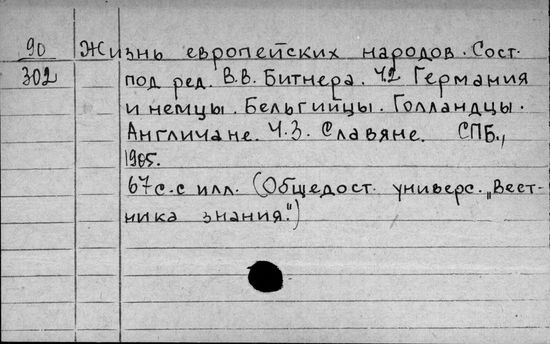 90 Жизнь европейских народов. Сост.
302 под ред. В.В. Битнера. Ч.2 Германия
и немцы. Бельгийцы. Голландцы.
Англичане. Ч.3. Славяне. СПБ.,
1905.
67с. с илл. (Общедост. универс. „Вест-
ника знания".)